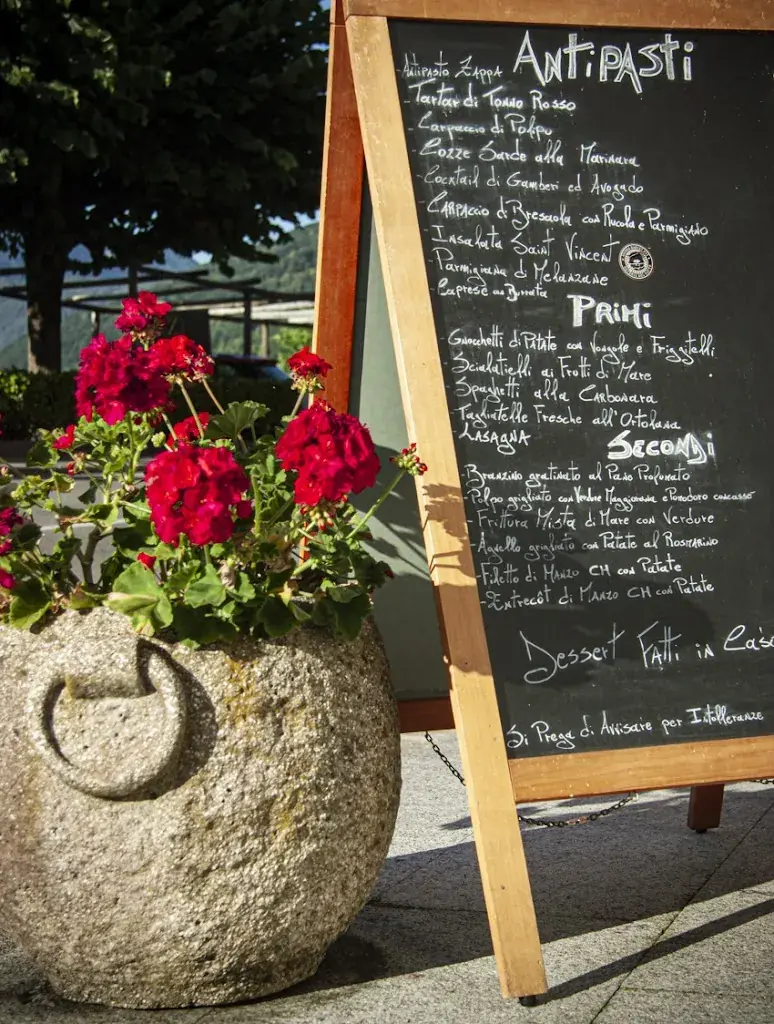 ANTIPASTI
ANTIPASTO ZAPPA
- Tartar di Tonno Rosso
- Carpaccio di Polipo
- Cozze Sarde alla Marinara
- Cocktail di Gamberi ed Avogado
- CARPACCIO di Bresaola con Rucola e Parmigiano
- Insalata Saint Vincent
- Parmigiana di Melanzane
- Caprese con Burrata
PRIMI
Gnocchetti di Patate con Vongole e Friggitelli
Scialatielli ai Frutti di Mare
Spaghetti alla Carbonara
Tagliatelle Fresche all'Ortolana
LASAGNA
SECONDi
Branzino gratinato al Pane Profumato
- Polpo grigliato con Verdure Maggiorana e Pomodoro concasse
- Frittura Mista di Mare con Verdure
- Agnello grigliato con Patate al Rosmarino
- Filetto di Manzo CH con Patate
- Entrecôt di Manzo CH con Patate
Dessert Fatti in Casa
Si Prega di Avvisare per Intolleranze